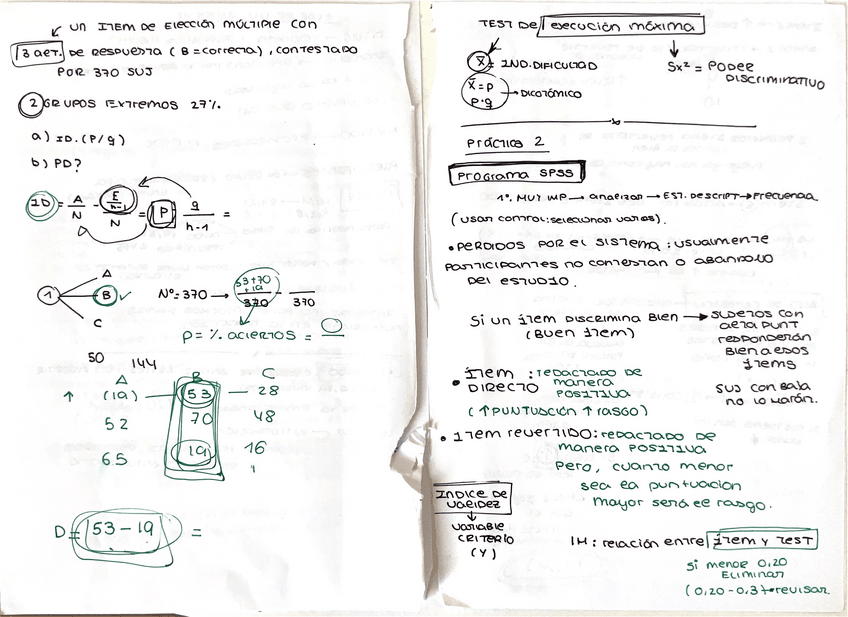 UN ITEM DE ELECCIÓN MÚLTIPLE CON
3 ALT. DE RESPUESTA (B = correcta), CONTESTADO
POR 370 SUJ
2 GRUPOS EXTREMOS 27%.
a) ID. (P/q)
b) PD?
ID = A/N - (E/(n-1))/N = P q/(n-1) =
1 A
B ✓
C
Nº = 370 → 53+70+19/370 - /370
P = % ACIERTOS =
50 144
A B C
↑ (19) — 53 — 28
52 70 48
65 19 16
D = |53 - 19| =
TEST DE ejecución máxima
X̄ = IND. DIFICULTAD
Sx² = PODER DISCRIMINATIVO
X̄ = P
P·q → DICOTÓMICO
PRÁCTICA 2
Programa SPSS
1º. MUY IMP → analizar → EST. DESCRIPT → Frecuencia
(usar control: seleccionar varios).
• PERDIDOS POR EL SISTEMA: usualmente
participantes no contestan o abandono
del estudio.
Si un ítem discrimina bien → sujetos con
(Buen ítem) alta punt
responderán
bien a esos
ítems
suj con baja
no lo harán.
• ÍTEM DIRECTO: redactado de
manera
positiva
(↑ PUNTUACIÓN ↑ rasgo)
• ITEM REVERTIDO: redactado de
manera positiva
Pero, cuanto menor
sea la puntuación
mayor será el rasgo.
INDICE DE
VALIDEZ
↓
VARIABLE
CRITERIO
(Y)
IH: relación entre ítem y TEST
si menor 0,20
ELIMINAR
(0,20 - 0,3) → revisar